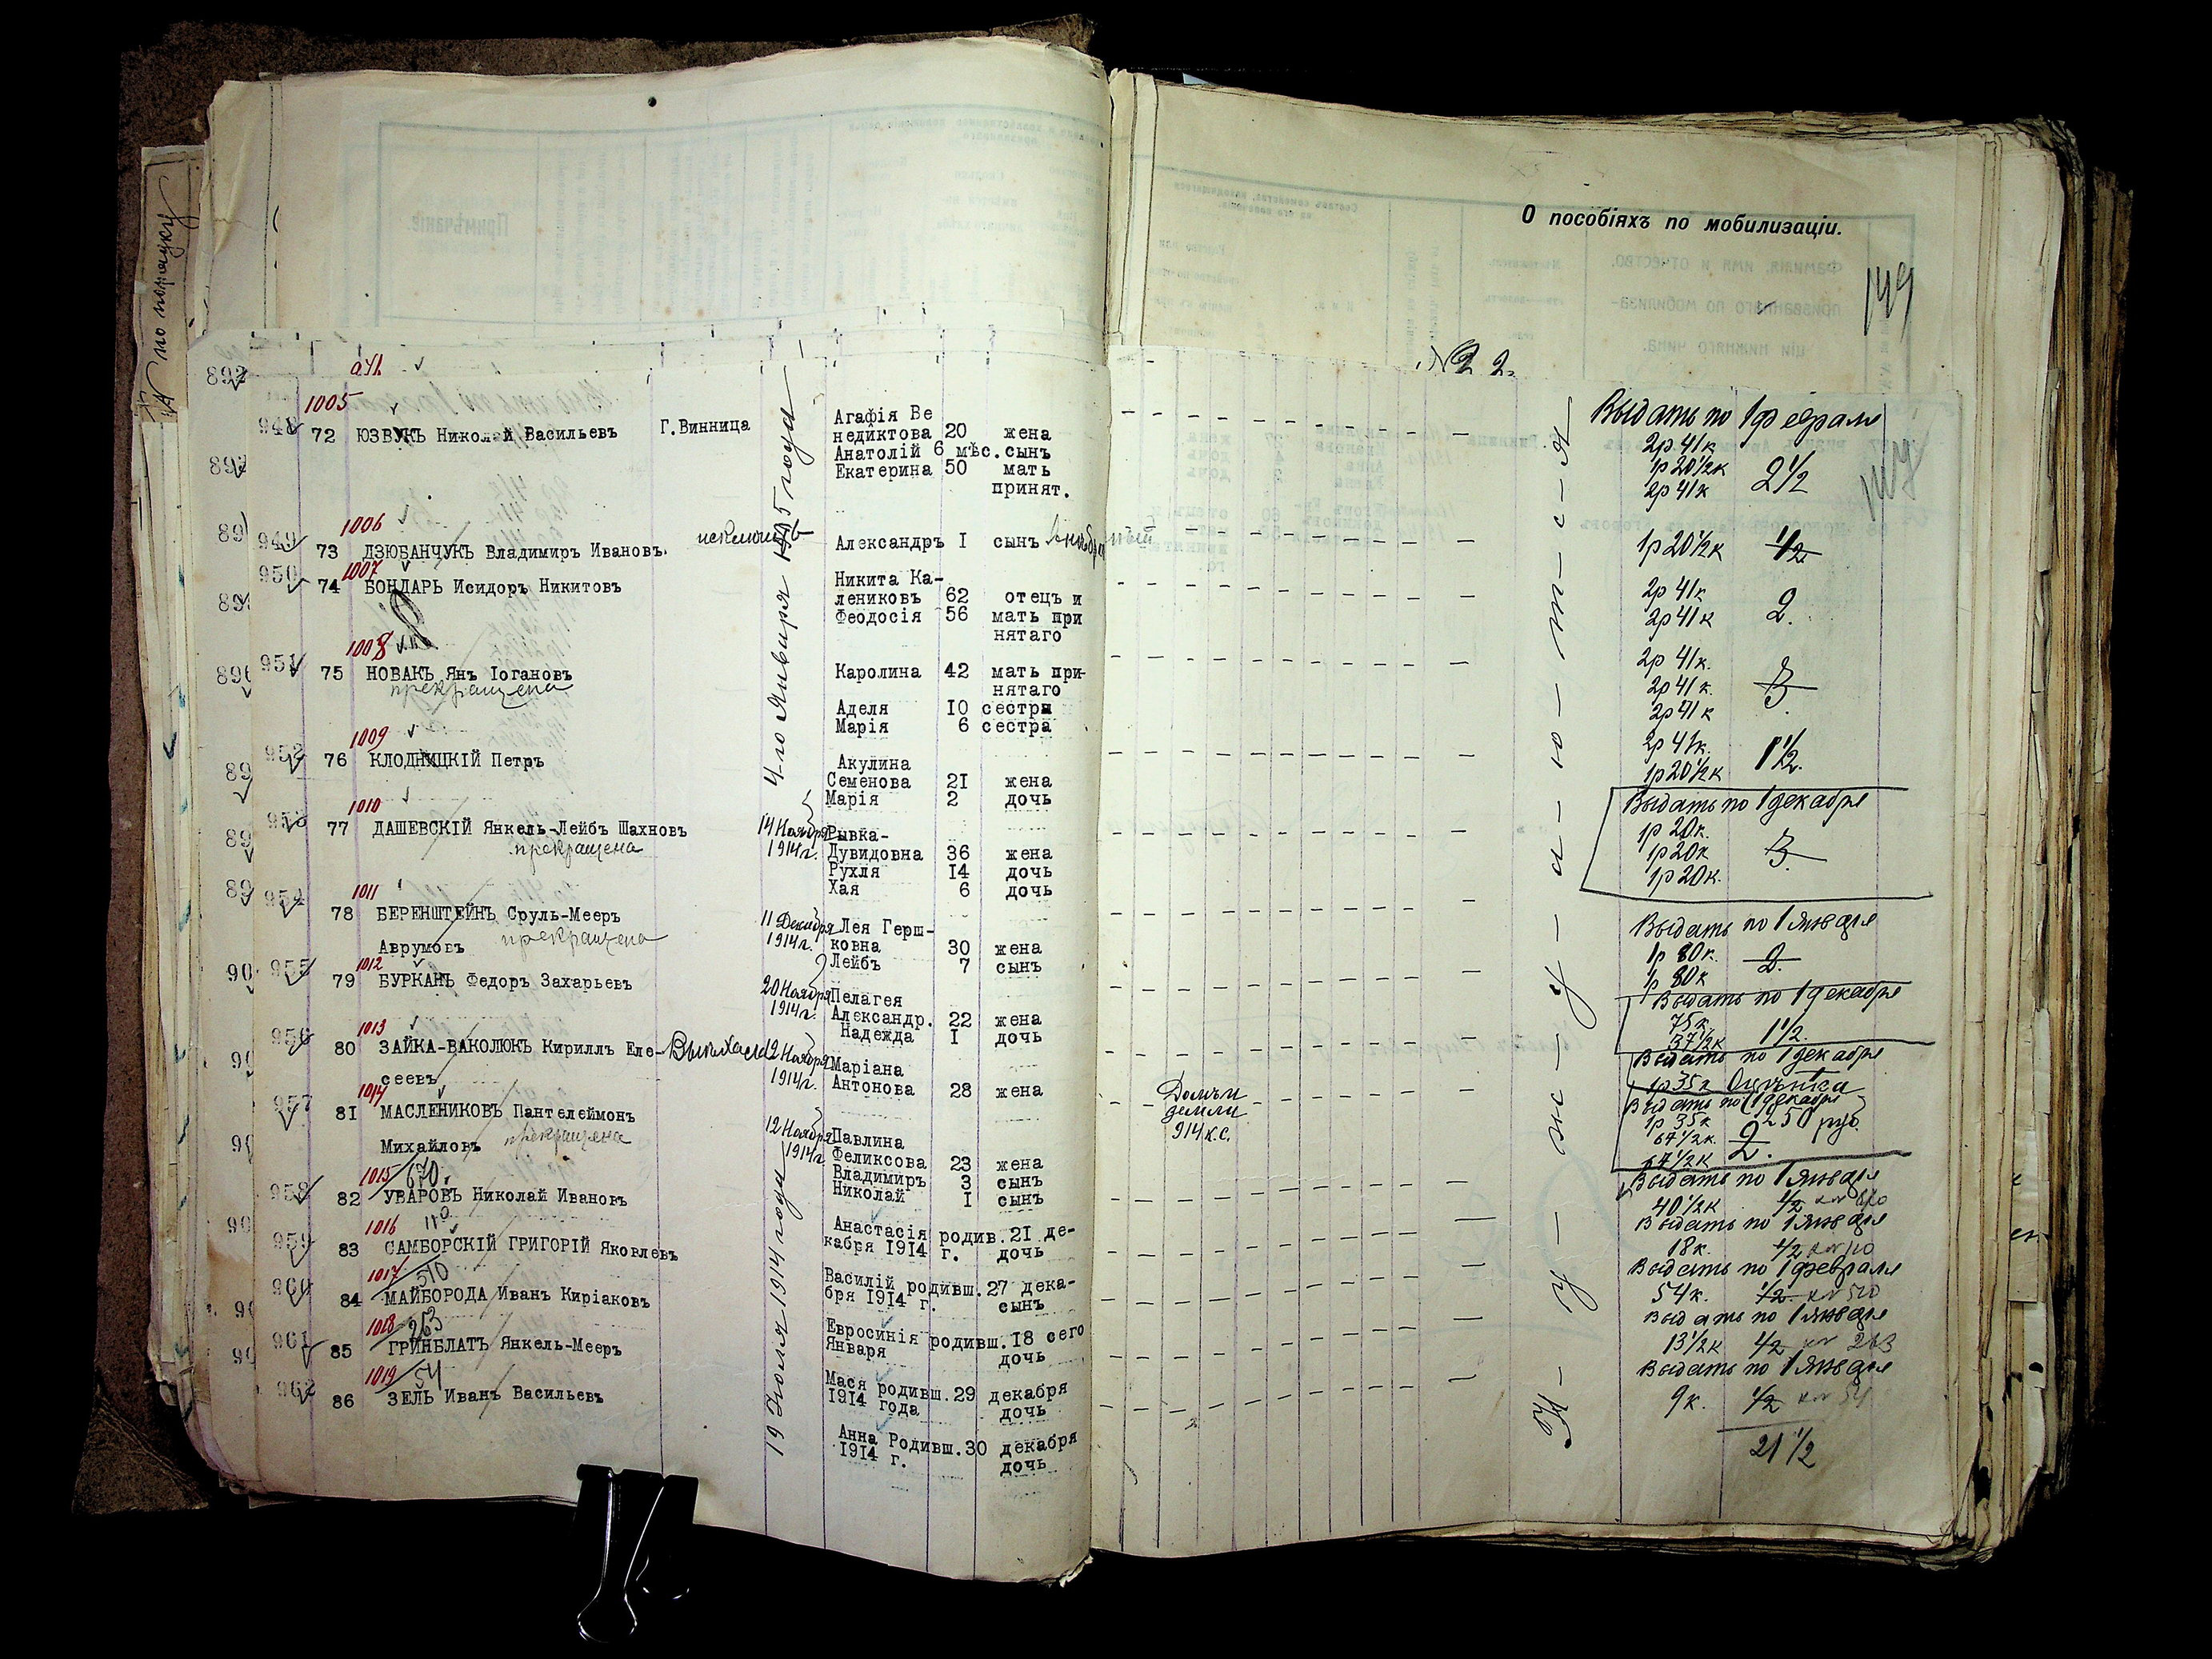 О пособіяхъ по мобилизаціи.
149
№ 2
по порядку
892
1005
948 72 ЮЗВУКЪ Николай Васильевъ Г.Винница
Агафія Ве
недиктова 20 жена
Анатолій 6 мѣс. сынъ
Екатерина 50 мать
принят.
Выдать по 1 февраля
2р 41к
1р 20 1/2к
2р 41к
2 1/2
4-го Января 1915 года
1006
949 73 ДЗЮБАНЧУКЪ Владимиръ Ивановъ.
Александръ I сынъ
1р 20 1/2к 1/2
1007
950 74 БОНДАРЬ Исидоръ Никитовъ
Никита Ка-
лениковъ 62 отецъ и
Феодосія 56 мать при
нятаго
2р 41к
2р 41к
2.
1008
951 75 НОВАКЪ Янъ Іогановъ
прекращена
Каролина 42 мать при-
нятаго
Аделя IO сестры
Марія 6 сестра
2р 41к.
2р 41к.
2р 41к
3
1009
952 76 КЛОДНИЦКІЙ Петръ
Акулина
Семенова 2I жена
Марія 2 дочь
2р 41к.
1р 20 1/2к
1 1/2.
1010
953 77 ДАШЕВСКІЙ Янкель-Лейбъ Шахновъ
прекращена
14 Ноября
1914г.
Рывка-
Дувидовна 36 жена
Рухля I4 дочь
Хая 6 дочь
Выдать по 1 декабря
1р 20к.
1р 20к
1р 20к.
3
1011
954 78 БЕРЕНШТЕЙНЪ Сруль-Мееръ
Аврумовъ прекращена
11 Декабря
1914г.
Лея Герш-
ковна 30 жена
Лейбъ 7 сынъ
Выдать по 1 Января
1р 80к.
1р 80к
2.
1012
955 79 БУРКАНЪ Федоръ Захарьевъ
20 Ноября
1914г.
Пелагея
Александр. 22 жена
Надежда I дочь
Выдать по 1 декабря
75к.
37 1/2к
1 1/2.
1013
956 80 ЗАЙКА-ВАКОЛЮКЪ Кириллъ Еле-
сеевъ
12 Ноября
1914г.
Маріана
Антонова 28 жена
Выдать по 1 декабря
1р 35к Оцѣнка
250 руб.
земли
914 к.с.
1014
957 8I МАСЛЕНИКОВЪ Пантелеймонъ
Михайловъ прекращена
12 Ноября
1914г.
Павлина
Феликсова 23 жена
Владимиръ 3 сынъ
Николай I сынъ
Выдать по 1 декабря
1р 35к
67 1/2к.
67 1/2к
2.
1015 670
958 82 УВАРОВЪ Николай Ивановъ
Анастасія родив. 2I де-
кабря I9I4 г. дочь
Выдать по 1 Января
40 1/2к 1/2
19 Июля 1914 года
1016 110
959 83 САМБОРСКІЙ ГРИГОРІЙ Яковлевъ
Василій родивш. 27 дека-
бря I9I4 г. сынъ
Выдать по 1 Января
18к. 1/2
1017 510
960 84 МАЙБОРОДА Иванъ Киріаковъ
Евросинія родивш. I8 сего
Января дочь
Выдать по 1 февраля
54к. 1/2
1018 263
961 85 ГРИНБЛАТЪ Янкель-Мееръ
Мася родивш. 29 декабря
I9I4 года дочь
Выдать по 1 Января
13 1/2к 1/2 263
1019 54
962 86 ЗЕЛЬ Иванъ Васильевъ
Анна Родивш. 30 декабря
I9I4 г. дочь
Выдать по 1 Января
9к. 1/2 54
21 1/2
Н-у-ж-д-а-ю-т-с-я